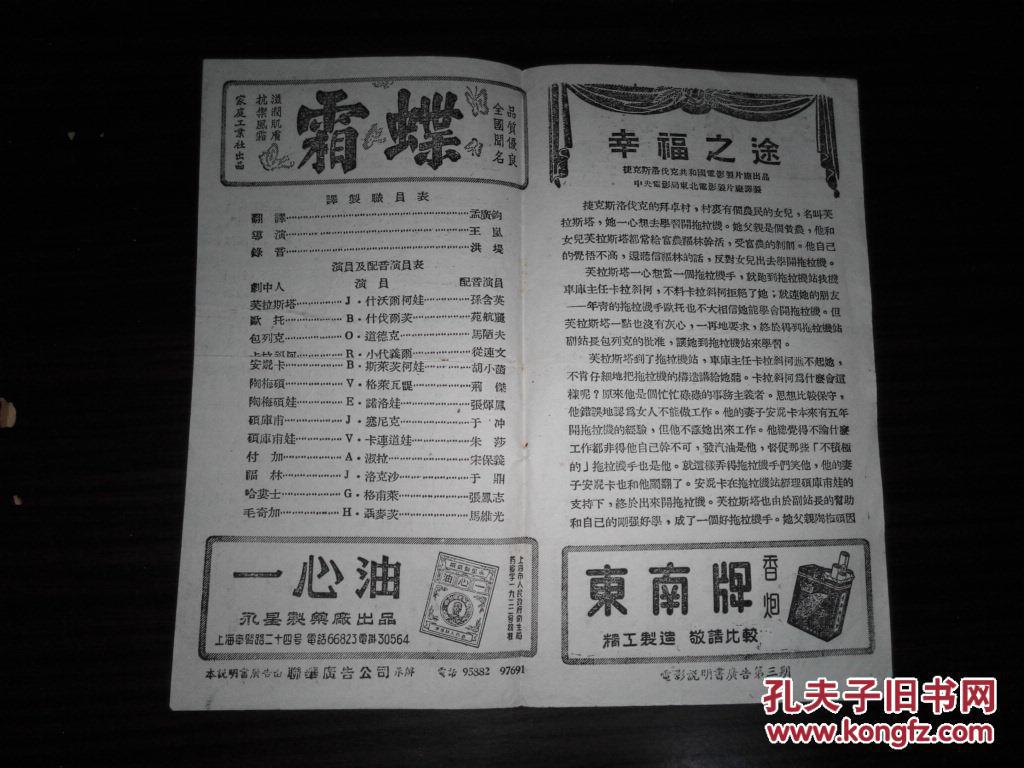 蝶霜
品質優良
全國聞名
滋潤肌膚
抗禦風霜
家庭工業社出品
譯製職員表
翻譯 孟廣鈞
導演 王嵐
錄音 洪堤
演員及配音演員表
劇中人 演員 配音演員
芙拉斯塔 J·什沃爾柯娃 孫含英
歐托 B·什伐爾茨 苑航
包列克 O·道德克 馬陋夫
卡拉斜柯 R·小代義爾 從連文
安妮卡 B·斯萊茨柯娃 胡小菡
陶梅碩 V·格萊瓦 荊傑
陶梅碩娃 E·諾洛娃 張煇鳳
碩庫甫 J·塞尼克 于冲
碩庫甫娃 V·卡連道娃 朱莎
付加 A·淑拉 宋保義
福林 J·洛克沙 于鼎
哈婁士 G·格甫萊 張鳳志
毛奇加 H·聶麥茨 馬維光
一心油
永星製藥廠出品
電話66823電掛30564
本說明書廣告由 聯華廣告公司 承辦 電話 95882 97691
幸福之途
捷克斯洛伐克共和國電影製片廠出品
中央電影局東北電影製片廠譯製
捷克斯洛伐克的拜卓村，村裏有個農民的女兒，名叫芙
拉斯塔，她一心想去學習開拖拉機。她父親是個貧農，他和
女兒芙拉斯塔都常給富農福林幹活，受富農的剝削。他自己
的覺悟不高，還聽信福林的話，反對女兒出去學開拖拉機。
芙拉斯塔一心想當一個拖拉機手，就跑到拖拉機站找機
車庫主任卡拉斜柯，不料卡拉斜柯拒絕了她；就連她的朋友
——年青的拖拉機手歐托也不大相信她能學會開拖拉機。但
芙拉斯塔一點也沒有灰心，一再地要求，終於得到拖拉機站
副站長包列克的批准，讓她到拖拉機站來學習。
芙拉斯塔到了拖拉機站，車庫主任卡拉斜柯瞧不起她，
不肯仔細地把拖拉機的構造講給她聽。卡拉斜柯爲什麼會這
樣呢？原來他是個忙忙碌碌的事務主義者。思想比較保守，
他錯誤地認爲女人不能做工作。他的妻子安妮卡本來有五年
開拖拉機的經驗，但他不讓她出來工作。他總覺得不論什麼
工作都非得他自己幹不可，發汽油是他，督促那些「不積極
的」拖拉機手也是他。就這樣弄得拖拉機手們笑他，他的妻
子安妮卡也和他鬧翻了。安妮卡在拖拉機站經理碩庫甫娃的
支持下，終於出來開拖拉機。芙拉斯塔也由於副站長的幫助
和自己的剛强好學，成了一個好拖拉機手。她父親陶梅碩因
東南牌
香烟
精工製造 敬請比較
電影説明書廣告第三期
孔夫子旧书网
www.kongfz.com